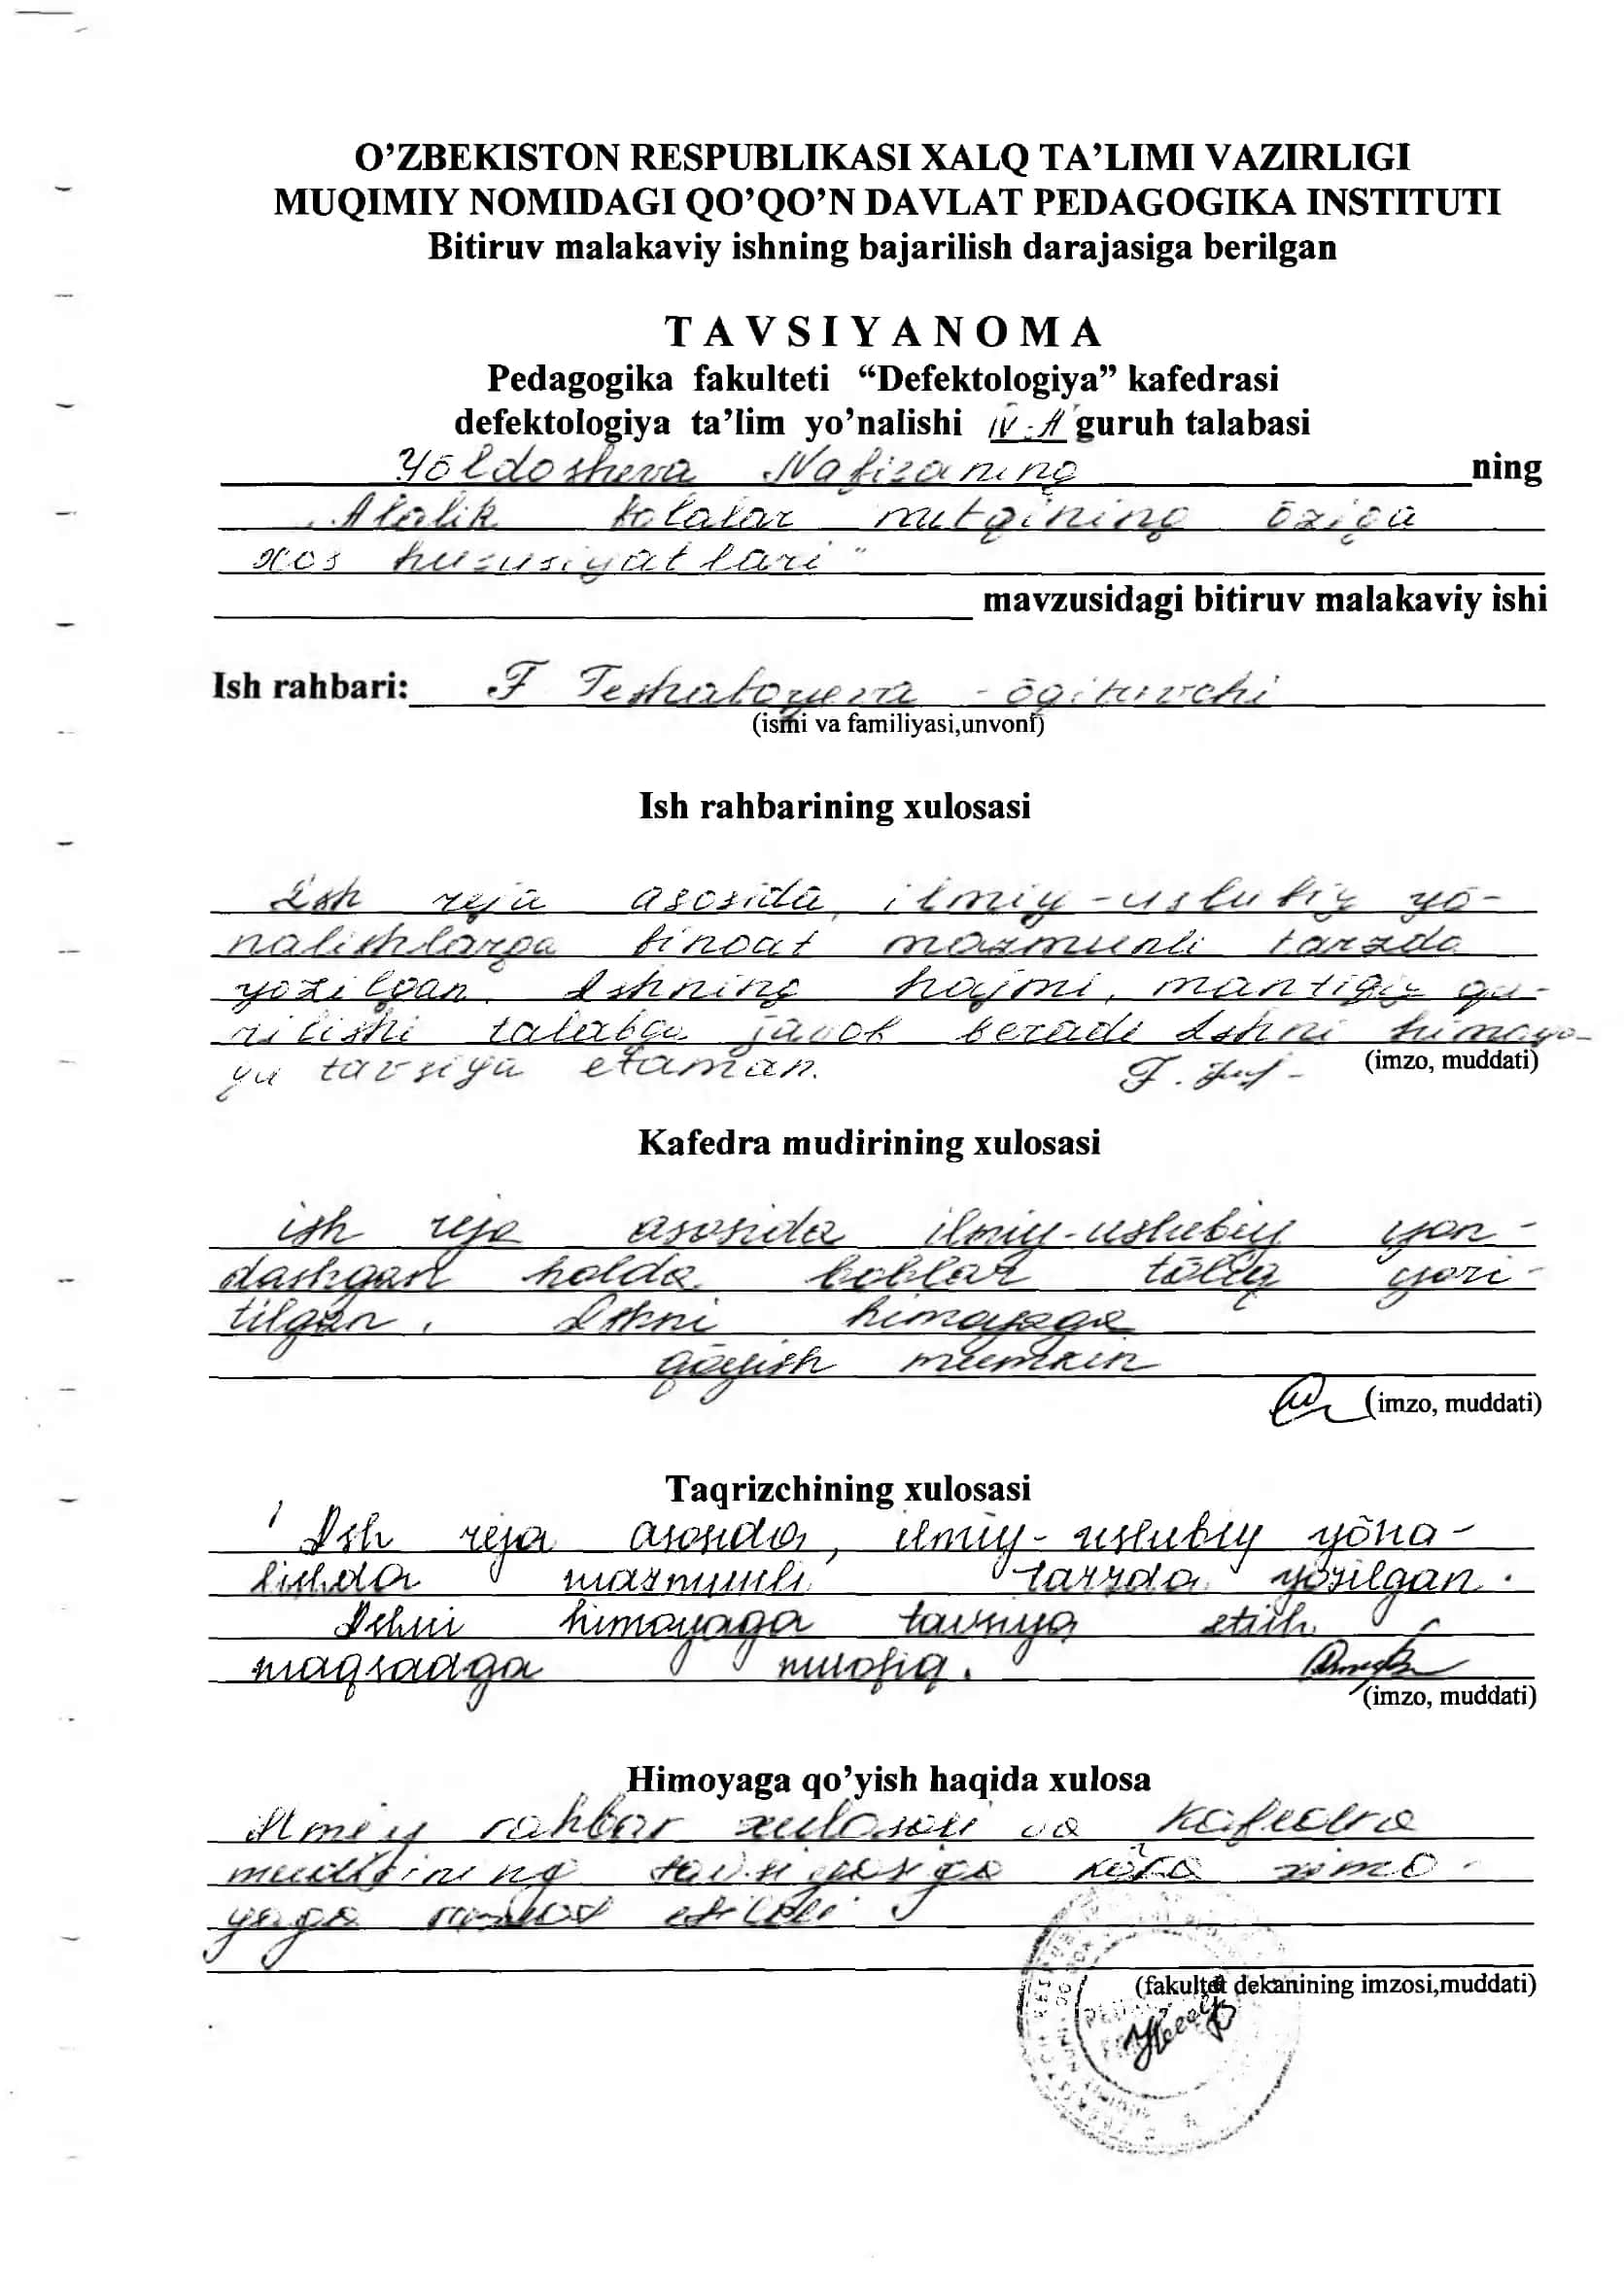 O’ZBEKISTON RESPUBLIKASI XALQ TA’LIMI VAZIRLIGI
MUQIMIY NOMIDAGI QO’QO’N DAVLAT PEDAGOGIKA INSTITUTI
Bitiruv malakaviy ishning bajarilish darajasiga berilgan
T A V S I Y A N O M A
Pedagogika fakulteti “Defektologiya” kafedrasi
defektologiya ta’lim yo’nalishi IV-A guruh talabasi
Yōldosheva Nafizaning ning
„Alalik bolalar nutqining ōziga
xos hususiyatlari”
mavzusidagi bitiruv malakaviy ishi
Ish rahbari: F Teshaboyeva - ōqituvchi
(ismi va familiyasi,unvoni)
Ish rahbarining xulosasi
Ish reja asosida, ilmiy-uslubiy yō-
nalishlarga binoat mazmunli tarzda
yozilgan. Ishning hajmi, mantiqiy qu-
rilishi talabga javob beradi Ishni himoya-
ga tavsiya etaman. (imzo, muddati)
Kafedra mudirining xulosasi
ish reja asosida ilmiy-uslubiy yon-
dashgan holda boblar tōliq yori-
tilgan. Ishni himoyaga
qōyish mumkin
(imzo, muddati)
Taqrizchining xulosasi
Ish reja asosida, ilmiy-uslubiy yōna-
lishda mazmunli tarzda yozilgan.
Ishni himoyaga tavsiya etish
maqsadga muofiq.
(imzo, muddati)
Himoyaga qo’yish haqida xulosa
ilmiy rahbar xulosasi va kafedra
mudirining tavsiyasiga kōra ximo-
yaga etildi
(fakultet dekanining imzosi,muddati)